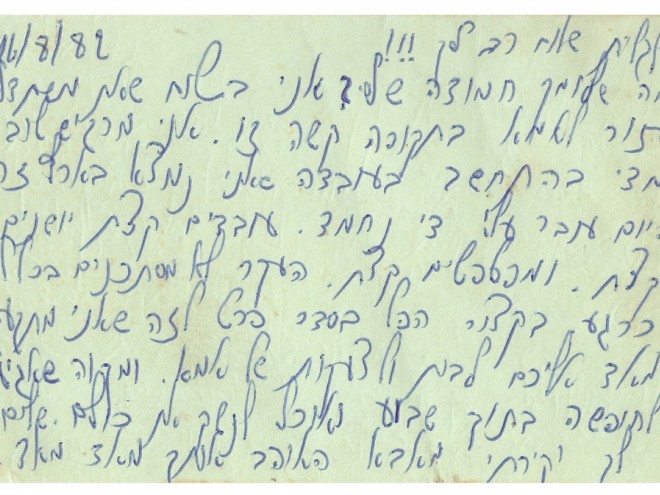 16/8/82
שלום רב לך !!!
מה שלומך חמודה שלי? אני בטוח שאת
לעזור לאמא בתקופה קשה זו. אני מרגיש טוב
בהתחשב בעובדה שאני נמצא בארץ זרה
היום עבר עלי די נחמד. עובדים קצת ישנים
קצת. ומפטפטים קצת. העקר לא מסתכנים בכלל
כרגע בקצור הכל בסדר פרט לזה שאני מתגעגע
מאד אליכם לבית ולצעקות של אמא. ומקוה שאגיע
לחופשה בתוך שבוע ואוכל לנשק את כולם. שלום
לך יקירתי מאבא האוהב אותך מאד מאד